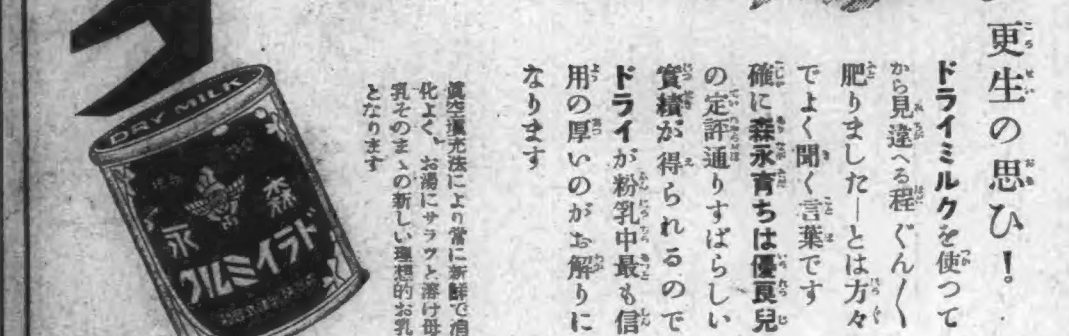 更生の思ひ!
ドライミルクを使つて
から見違へる程ぐん〳〵
肥りました―とは方々
でよく聞く言葉です
確に森永育ちは優良兒
の定評通りすばらしい
實績が得られるので
ドライが粉乳中最も信
用の厚いのがお解りに
なります
眞空 法により常に新鮮で消
化よく、お湯にサラツと溶け母
乳そのまゝの新しい理想的お乳
となります
DRY MILK
森永
ドライミルク